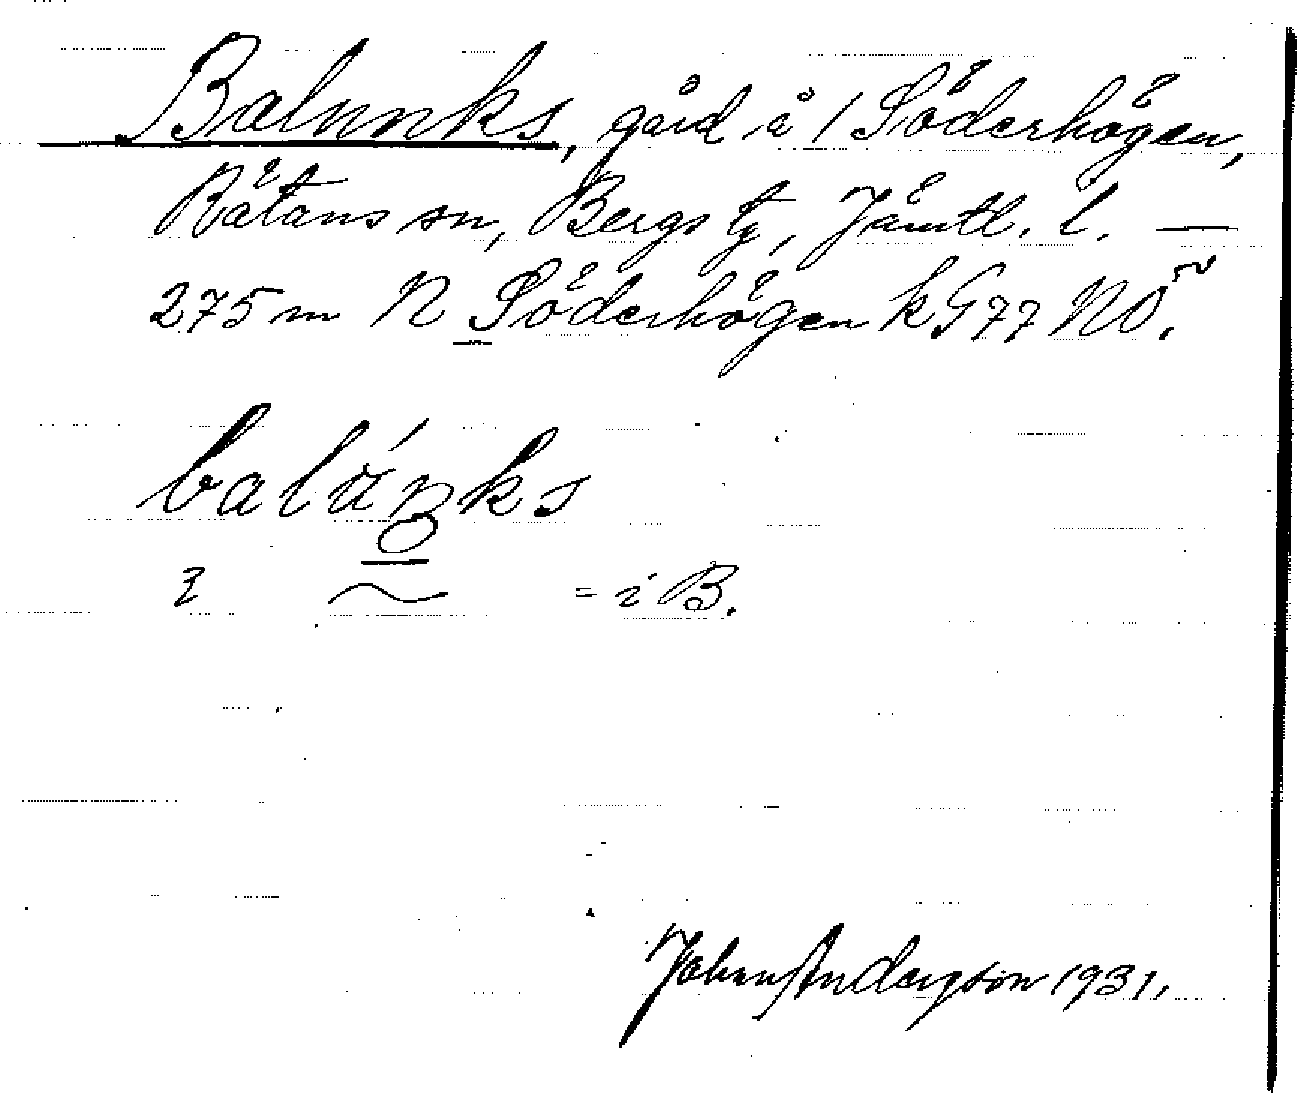 Balunks, gård å 1 Söderhögen,
Rätans sn, Bergs tg, Jämtl. l. —
275 m N Söderhögen kG77 NO.
balúŋks
= i B.
Johan Andersson 1931.